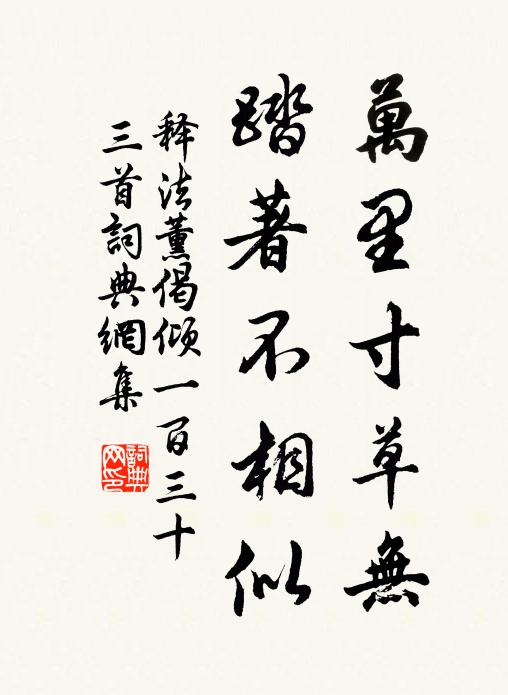 萬里寸草無
踏著不相似
释法薰偈倾一百三十
三首詞典網集
詞典
网印